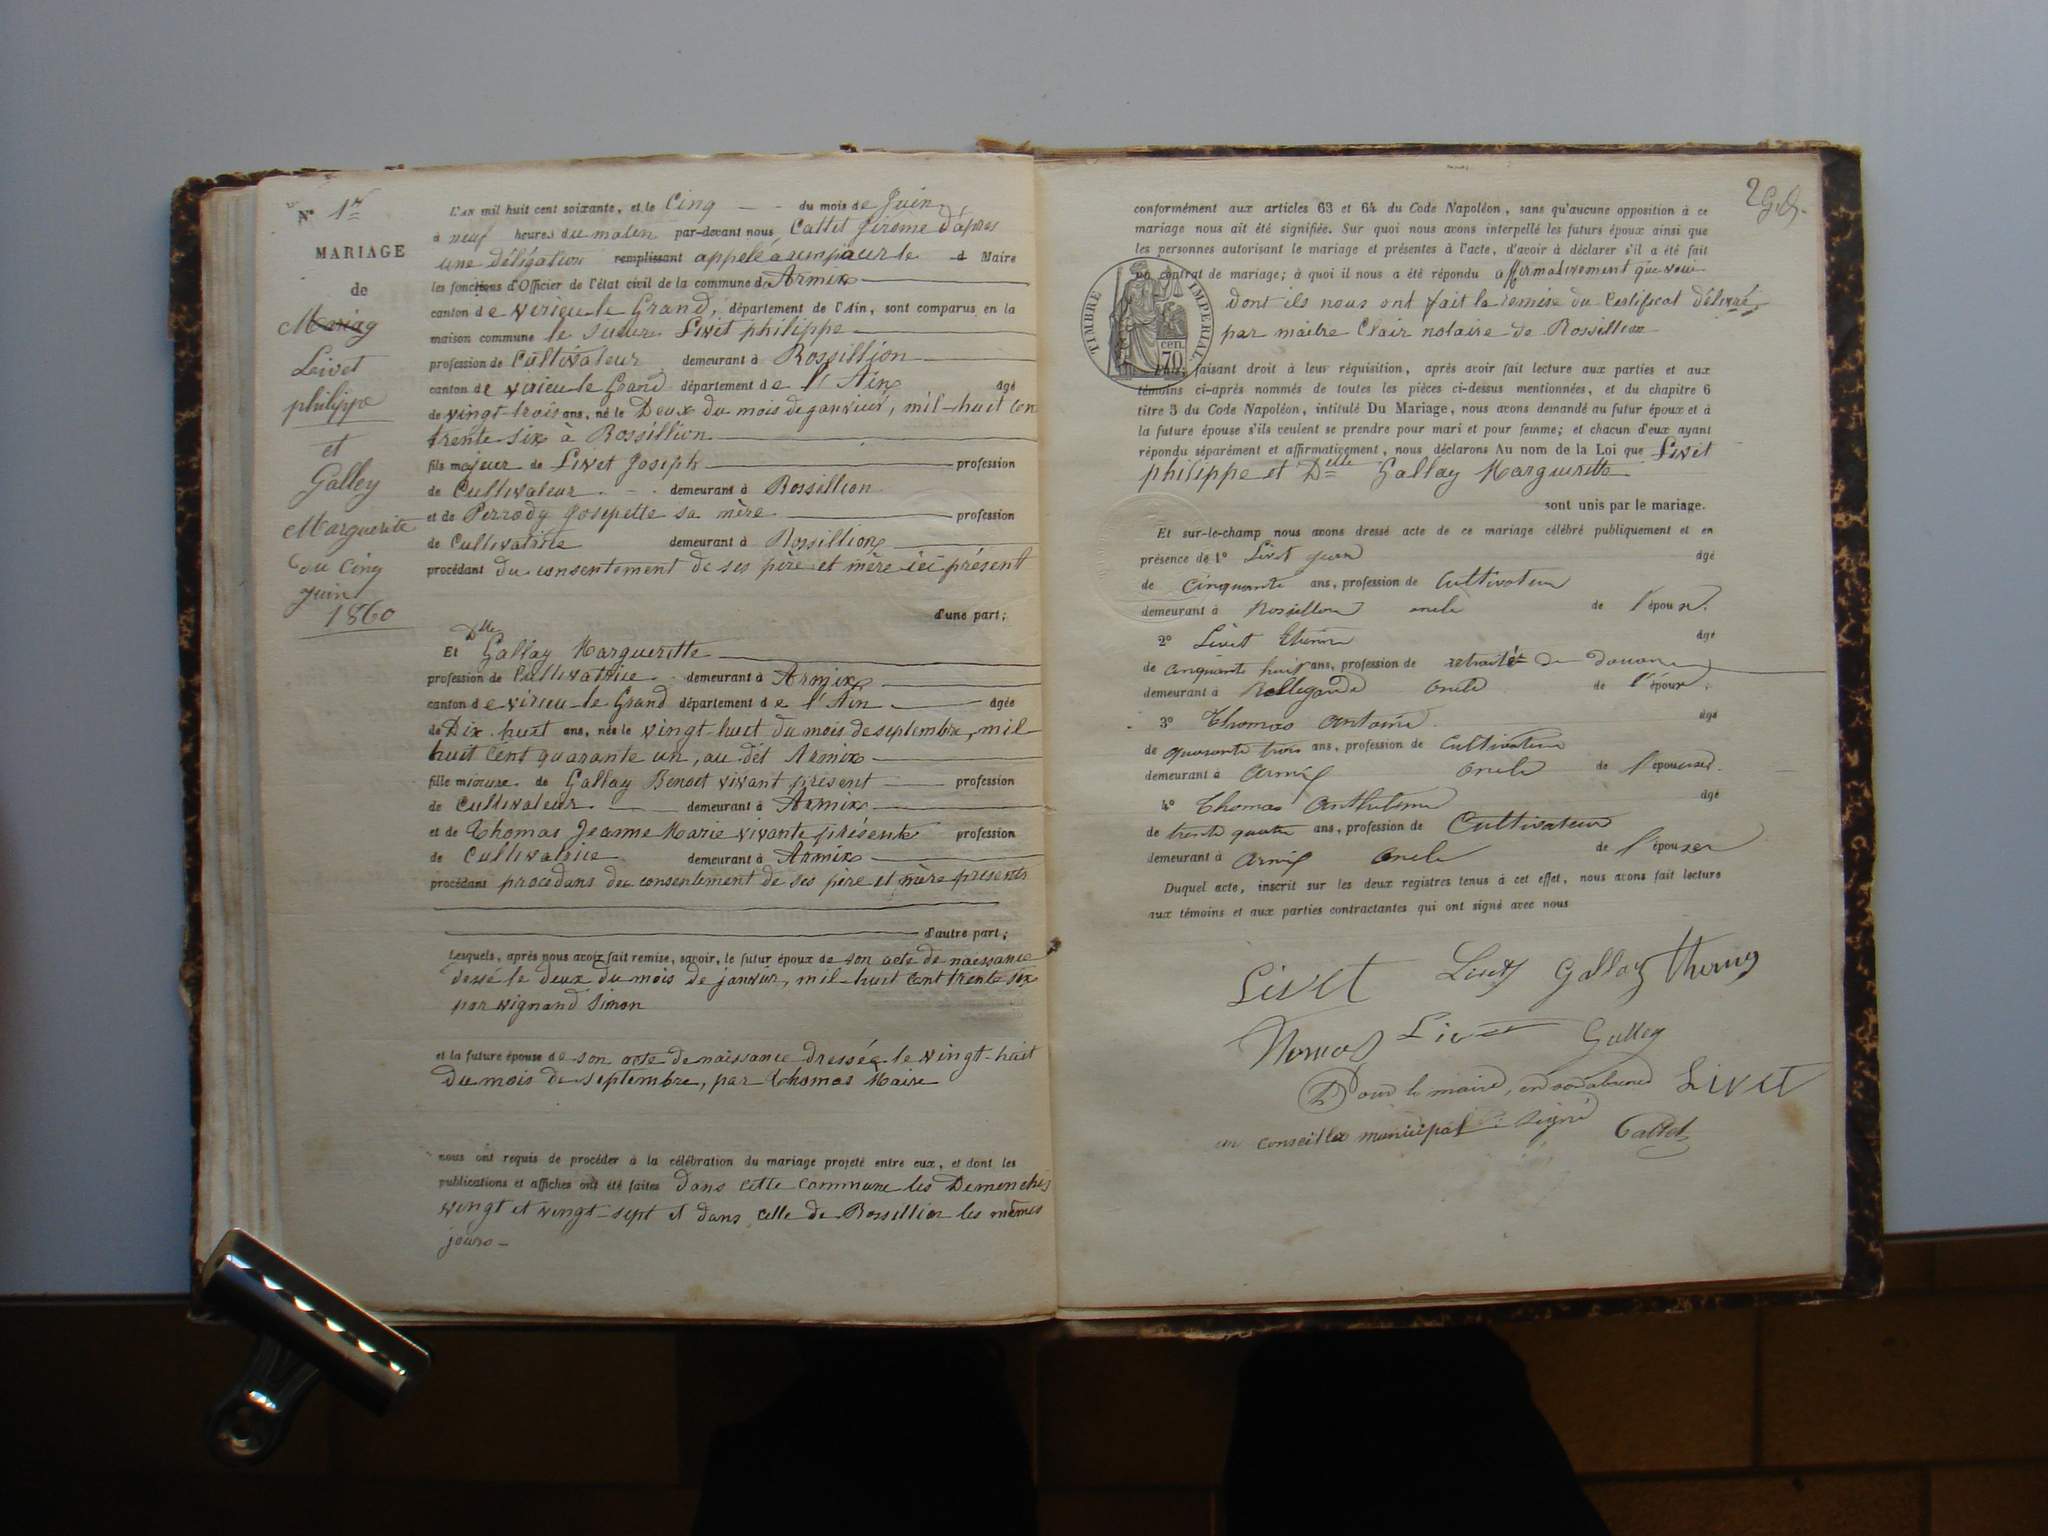 N° 1er
MARIAGE
de
Livet
philippe
et
Galley
Marguerite
du cinq
juin
1860
L'AN mil huit cent soixante, et le Cinq du mois de Juin,
à neuf heures du matin par-devant nous Cattet Jérome d'après
une déligation remplissant appellé a remplacer le d Maire
les fonctions d'Officier de l'état civil de la commune d Armix
canton de virieu le Grand, département de l'Ain, sont comparus en la
maison commune le sieur Livet philippe
profession de Cultivateur demeurant à Rossillion
canton de virieu le Grand département de l'Ain âgé
de vingt-trois ans, né le Deux du mois de janvier, mil-huit cen
trente six à Rossillion
fils majeur de Livet Joseph profession
de Cultivateur demeurant à Rossillion
et de Perrody Josepette sa mère profession
de Cultivatrice demeurant à Rossillion
procédant du consentement de ses père et mère ici présent
d'une part;
Et Dlle Gallay Margueritte
profession de Cultivatrice demeurant à Armix
canton de virieu-le Grand département de l'Ain âgée
de Dix huit ans, née le vingt-huit du mois de septembre, mil
huit cent quarante un, au dit Armix
fille mineure de Gallay Benoit vivant présent profession
de Cultivateur demeurant à Armix
et de Thomas Jeanne Marie vivante présente profession
de Cultivatrice demeurant à Armix
procédant procedans du consentement de ses père et mère présents
d'autre part;
Lesquels, après nous avoir fait remise, savoir, le futur époux de son acte de naissance
dressé le deux du mois de janvier, mil-huit cent trente six
par vignand Simon
et la future épouse de son acte de naissance dressée le vingt-huit
Du mois de septembre, par Thomas Maire
nous ont requis de procéder à la célébration du mariage projeté entre eux, et dont les
publications et affiches ont été faites dans cette commune les Demenches
vingt et vingt-sept et dans celle de Rossillion les mêmes
jours
2
conformément aux articles 63 et 64 du Code Napoléon, sans qu'aucune opposition à ce
mariage nous ait été signifiée. Sur quoi nous avons interpellé les futurs époux ainsi que
les personnes autorisant le mariage et présentes à l'acte, d'avoir à déclarer s'il a été fait
un contrat de mariage; à quoi il nous a été répondu affirmativement que voui
dont ils nous ont fait la remise du Certificat délivré
par maitre Clair notaire de Rossillion
TIMBRE IMPERIAL
70 cen.
Puis, faisant droit à leur réquisition, après avoir fait lecture aux parties et aux
témoins ci-après nommés de toutes les pièces ci-dessus mentionnées, et du chapitre 6
titre 5 du Code Napoléon, intitulé Du Mariage, nous avons demandé au futur époux et à
la future épouse s'ils veulent se prendre pour mari et pour femme; et chacun d'eux ayant
répondu séparément et affirmativement, nous déclarons Au nom de la Loi que Livet
philippe et Dlle Gallay Marguerette
sont unis par le mariage.
Et sur-le-champ nous avons dressé acte de ce mariage célébré publiquement et en
présence de 1° Livet jean âgé
de Cinquante ans, profession de Cultivateur
demeurant à Rossillon oncle de l'époux.
2° Livet Etienne âgé
de cinquante huit ans, profession de retraité de douane
demeurant à Bellegarde oncle de l'époux.
3° Thomas Antoine âgé
de quarante trois ans, profession de Cultivateur
demeurant à Armix oncle de l'épouse.
4° Thomas Anthelme âgé
de trente quatre ans, profession de Cultivateur
demeurant à Armix oncle de l'épouse
Duquel acte, inscrit sur les deux registres tenus à cet effet, nous avons fait lecture
aux témoins et aux parties contractantes qui ont signé avec nous
Livet Livet Gallay Thomas
Thomas Livet Galley
Pour le maire, en son absence Livet
un conseiller municipal signé Cattet